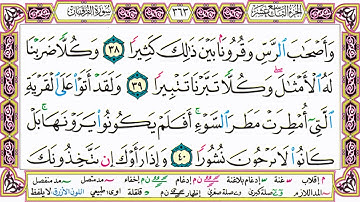 سورة الفرقان ٣٦٣ الجزء التاسع عشر
وَأَصْحَٰبَ ٱلرَّسِّ وَقُرُونًۢا بَيْنَ ذَٰلِكَ كَثِيرًا ٣٨ وَكُلًّا ضَرَبْنَا
لَهُ ٱلْأَمْثَٰلَ ۖ وَكُلًّا تَبَّرْنَا تَتْبِيرًا ٣٩ وَلَقَدْ أَتَوْا۟ عَلَى ٱلْقَرْيَةِ
ٱلَّتِىٓ أُمْطِرَتْ مَطَرَ ٱلسَّوْءِ ۚ أَفَلَمْ يَكُونُوا۟ يَرَوْنَهَا ۚ بَلْ
كَانُوا۟ لَا يَرْجُونَ نُشُورًا ٤٠ وَإِذَا رَأَوْكَ إِن يَتَّخِذُونَكَ